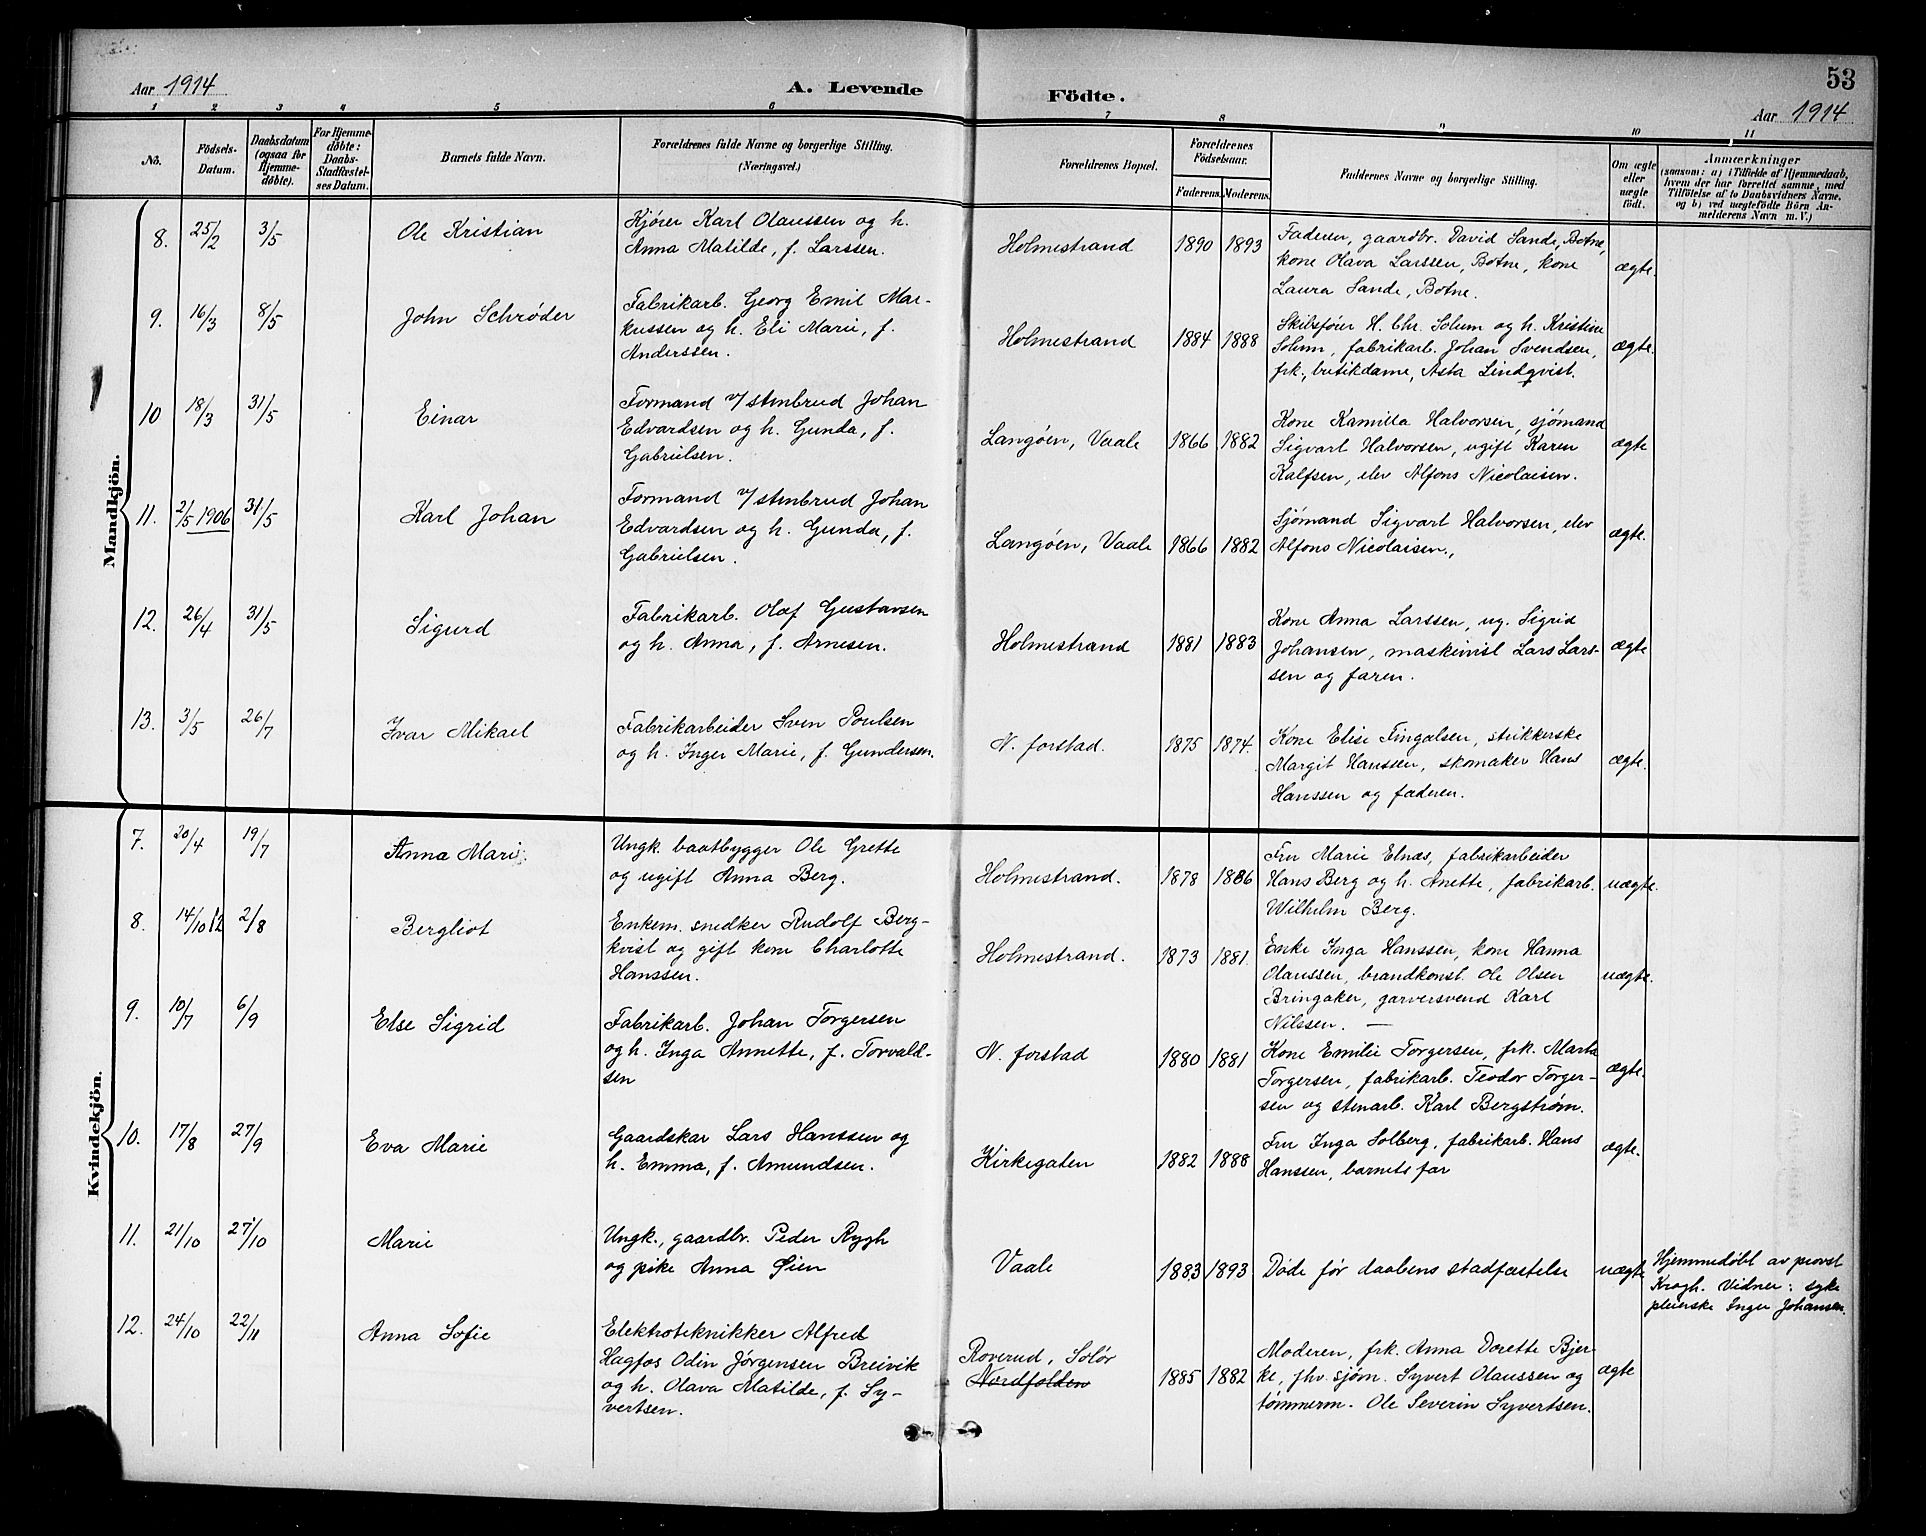 53
Aar 1914
A. Levende Födte.
Aar 1914
1 2 3 4 5 6 7 8 9 10 11
No.
Födsels-
Datum.
Daabsdatum
(ogsaa for
Hjemme-
døbte).
For Hjemme-
døbte:
Daabs-
Stadfæstel-
ses Datum.
Barnets fulde Navn.
Forældrenes fulde Navne og borgerlige Stilling.
(Næringsvei.)
Forældrenes Bopæl.
Forældrenes
Födselsaar.
Faderens. Moderens.
Faddernes Navne og borgerlige Stilling.
Om ægte
eller
uægte
födt.
Anmærkninger
(saasom: a) i Tilfælde af Hjemmedaab,
hvem der har forrettet samme, med
Tilföielse af to Daabsvidners Navne,
og b) ved uægtefödte Börn An-
melderens Navn m. V.)
Mandkjön.
8. 25/2 3/5 Ole Kristian
Kjører Karl Olaussen og h.
Anna Matilde, f. Larssen.
Holmestrand 1890 1893
Faderen, gaardbr. David Sande, Botne,
kone Olava Larssen, Botne, kone
Laura Sande, Botne.
ægte.
9. 16/3 8/5 John Schrøder
Fabrikarb. Georg Emil Mar-
kussen og h. Eli Marie, f.
Anderssen.
Holmestrand 1884 1888
Skibsfører H. Chr. Solum og h. Kristine
Solum, fabrikarb. Johan Svendsen,
frk., butikdame, Asta Lindqvist.
ægte.
10 18/3 31/5 Einar
Formand v/ stenbrud Johan
Edvardsen og h. Gunda, f.
Gabrielsen.
Langøen, Vaale 1866 1882
Kone Kamilla Halvorsen, sjømand
Sigvart Halvorsen, ugift Karen
Kalfsen, elev Alfons Nicolaisen.
ægte
11. 2/5 1906 31/5 Karl Johan
Formand v/ stenbrud Johan
Edvardsen og h. Gunda, f.
Gabrielsen.
Langøen, Vaale 1866 1882
Sjømand Sigvart Halvorsen, elev
Alfons Nicolaisen.,
ægte.
12. 26/4 31/5 Sigurd
Fabrikarb. Olaf Gustavsen
og h. Anna, f. Arnesen.
Holmestrand 1881 1883
Kone Anna Larssen, ug. Sigrid
Johansen, maskinist Lars Lars-
sen og faren.
ægte
13. 3/5 26/7 Ivar Mikael
Fabrikarbeider Sven Poulsen
og h. Inger Marie, f. Gundersen.
N. forstad. 1875 1874.
Kone Elise Fingalsen, strikkerske
Margit Hanssen, skomaker Hans
Hanssen og faderen.
ægte.
Kvindekjön.
7. 20/4 19/7 Anna Marie
Ungk. baatbygger Ole Grette
og ugift Anna Berg.
Holmestrand. 1878 1886
Fru Marie Elnæs, fabrikarbeider
Hans Berg og h. Anette, fabrikarb.
Wilhelm Berg.
uægte.
8. 14/10 12 2/8 Bergliot
Enkem. snedker Rudolf Berg-
kvist og gift kone Charlotte
Hanssen.
Holmestrand. 1873 1881.
Enke Inga Hanssen, kone Hanna
Olaussen, brandkonst. Ole Olsen
Bringaker, garversvend Karl
Nilssen. —
uægte.
9. 10/7 6/9 Else Sigrid
Fabrikarb. Johan Torgersen
og h. Inga Annette, f. Torvald-
sen
N. forstad 1880 1881
Kone Emilie Torgersen, frk. Marta
Torgersen, fabrikarb. Teodor Torger-
sen og stenarb. Karl Bergstrøm.
ægte.
10. 17/8 27/9 Eva Marie
Gaardskar Lars Hanssen og
h. Emma, f. Amundsen.
Kirkegaten 1882 1888
Fru Inga Solberg, fabrikarb. Hans
Hanssen, barnets far
ægte.
11. 21/10 27/10 Marie
Ungk., gaardbr. Peder Rygh
og pike Anna Øien
Vaale 1883 1893
Døde før daabens stadfæstelse
uægte
Hjemmedøbt av provst
Krogh. Vidner: syke
pleierske Inger Johansen.
12. 24/10 22/11 Anna Sofie
Elektroteknikker Alfred
Hagfos Odin Jørgensen Breivik
og h. Olava Matilde, f. Sy-
vertsen.
Roverud, Solør
Nordfolden
1885 1882
Moderen, frk. Anna Dorette Bjer-
ke, fhv. sjøm. Syvert Olaussen og
tømmerm. Ole Severin Syvertsen.
ægte